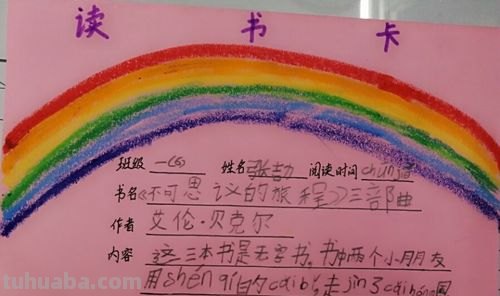 读书卡
班级 一(6) 姓名 张喆 阅读时间 chūn jié
书名《不可思议的旅程》三部曲
作者 艾伦·贝克尔
内容 这三本书是无字书。书中两个小朋友
用shén qí的cǎi bǐ,走jìn 3 cǎi hóng国
tuhuaba.com